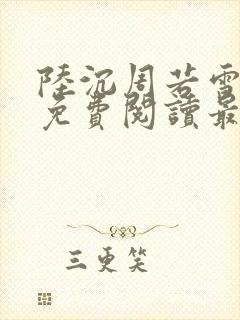 陸沉周若雪
免費閱讀最
三更笑